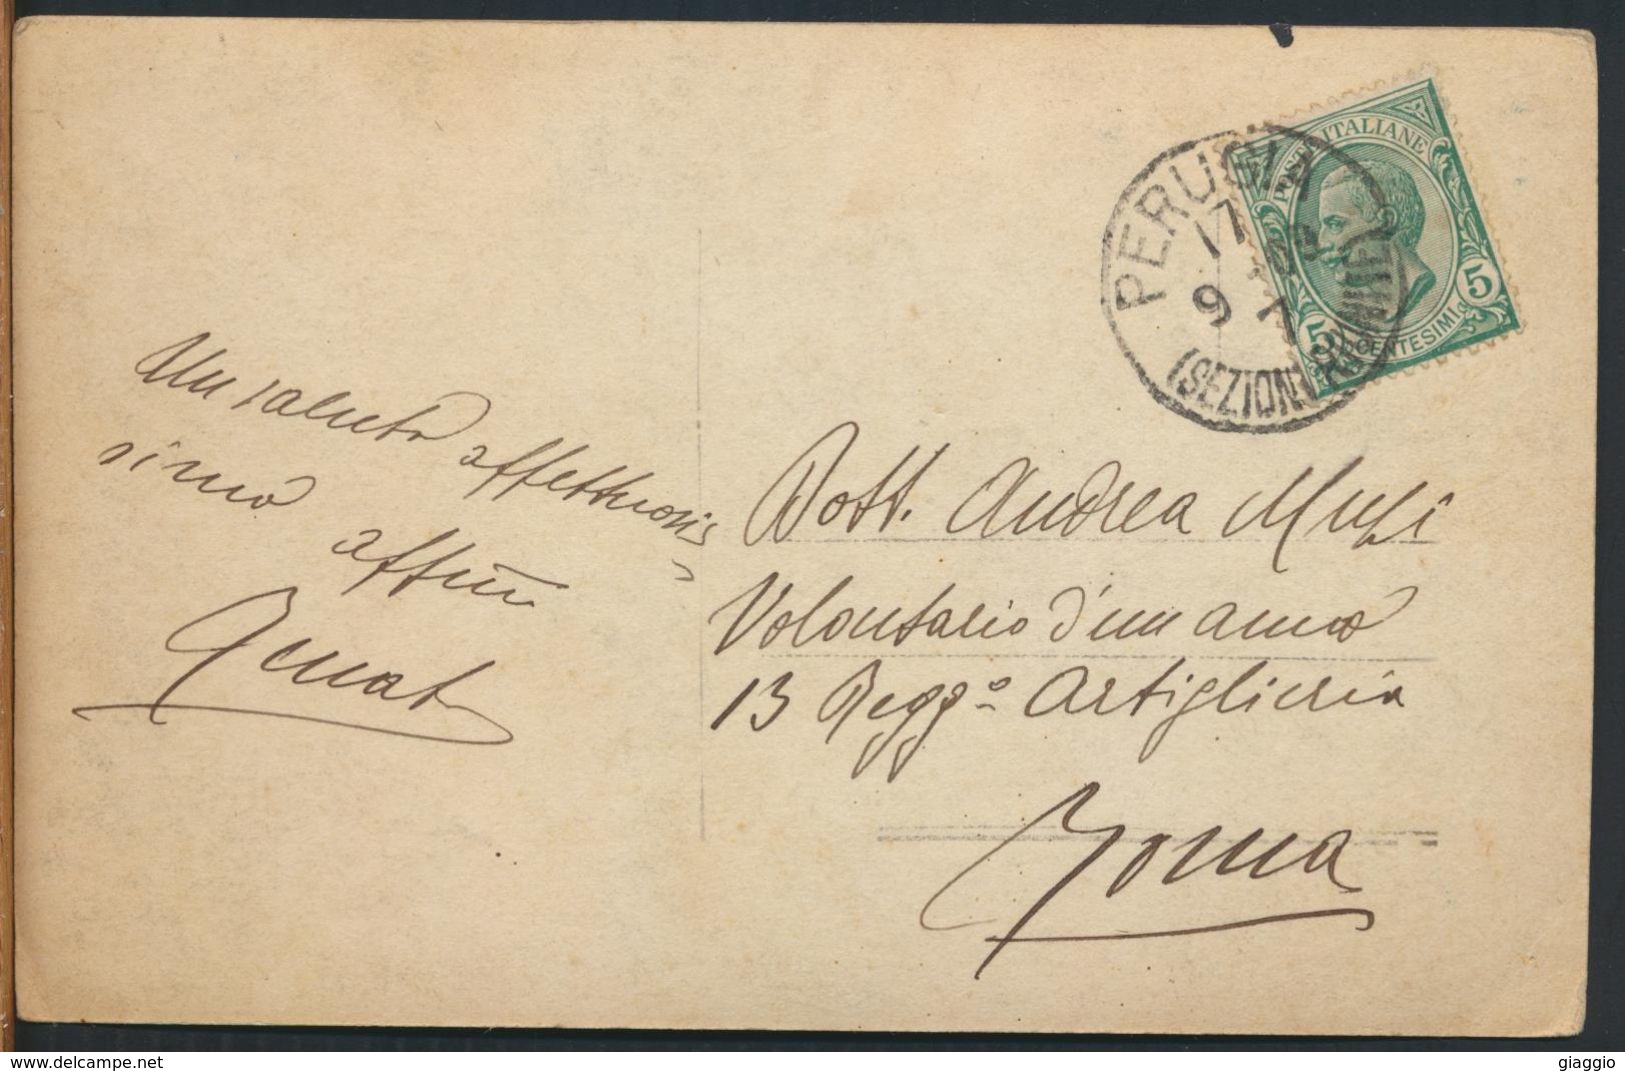 Un saluto affettuosis
simo
POSTE ITALIANE
5 CENTESIMI 5
PERUGIA
17
9
(SEZIONE
Dott. Andrea
Volontario d'un anno
13 Regg.o Artiglieria
Roma
www.delcampe.net
giaggio